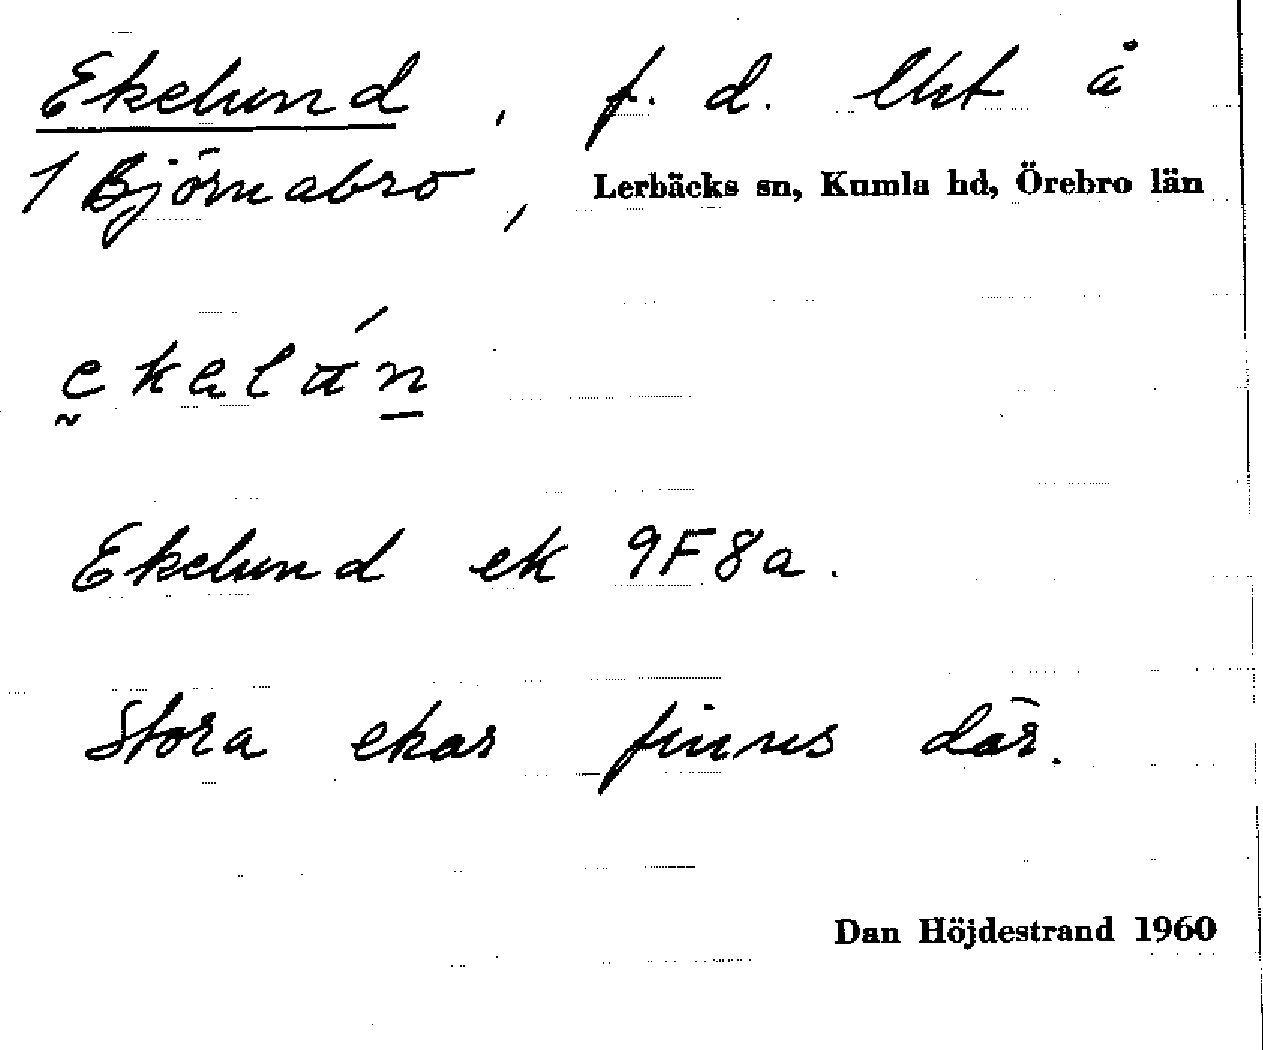 Ekelund, f. d. lht å
1 Björnabro, Lerbäcks sn, Kumla hd, Örebro län
ekalán
Ekelund ek 9F8a.
Stora ekar finns där.
Dan Höjdestrand 1960